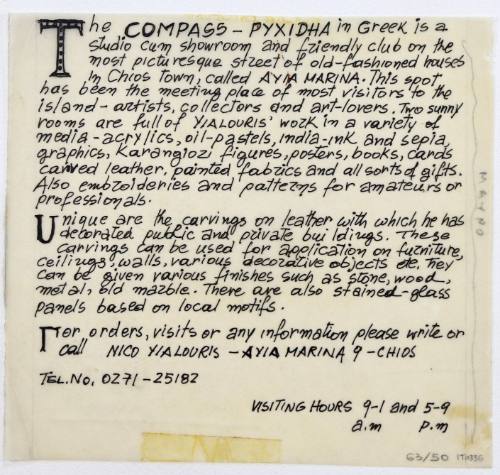 The COMPASS - PYXIDHA in Greek is a
studio cum showroom and friendly club on the
most picturesque street of old-fashioned houses
in Chios Town, called AYIA MARINA. This spot
has been the meeting place of most visitors to the
island - artists, collectors and art-lovers. Two sunny
rooms are full of YIALOURIS' work in a variety of
media - acrylics, oil-pastels, india-ink and sepia,
graphics, Karangiozi figures, posters, books, cards
carved leather, painted fabrics and all sorts of gifts.
Also embroideries and patterns for amateurs or
professionals.
Unique are the carvings on leather with which he has
decorated public and private buildings. These
carvings can be used for application on furniture,
ceilings, walls, various decorative objects etc. They
can be given various finishes such as stone, wood,
metal, old marble. There are also stained-glass
panels based on local motifs.
For orders, visits or any information please write or
call NICO YIALOURIS - AYIA MARINA 9 - CHIOS
TEL. No. 0271-25182
VISITING HOURS 9-1 and 5-9
a.m p.m
63/50